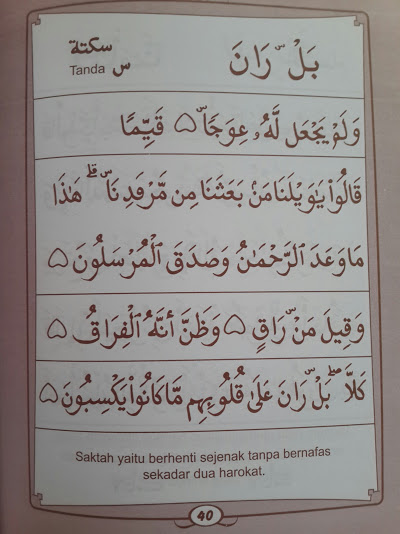 سكتة بَلْ ۜ رَانَ
Tanda س
وَلَمْ يَجْعَل لَّهُۥ عِوَجَاۜ ۝ قَيِّمًا
قَالُوا۟ يَٰوَيْلَنَا مَنۢ بَعَثَنَا مِن مَّرْقَدِنَاۜ ۗ هَٰذَا
مَا وَعَدَ ٱلرَّحْمَٰنُ وَصَدَقَ ٱلْمُرْسَلُونَ ۝
وَقِيلَ مَنْ ۜ رَاقٍ ۝ وَظَنَّ أَنَّهُ ٱلْفِرَاقُ ۝
كَلَّا ۖ بَلْ ۜ رَانَ عَلَىٰ قُلُوبِهِم مَّا كَانُوا۟ يَكْسِبُونَ ۝
Saktah yaitu berhenti sejenak tanpa bernafas
sekadar dua harokat.
40